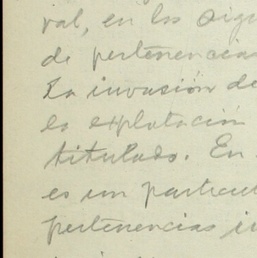 val, en los sigu
de pertenencias
La invasión de
la explotación
titulado. En
es un particu
pertenencias in